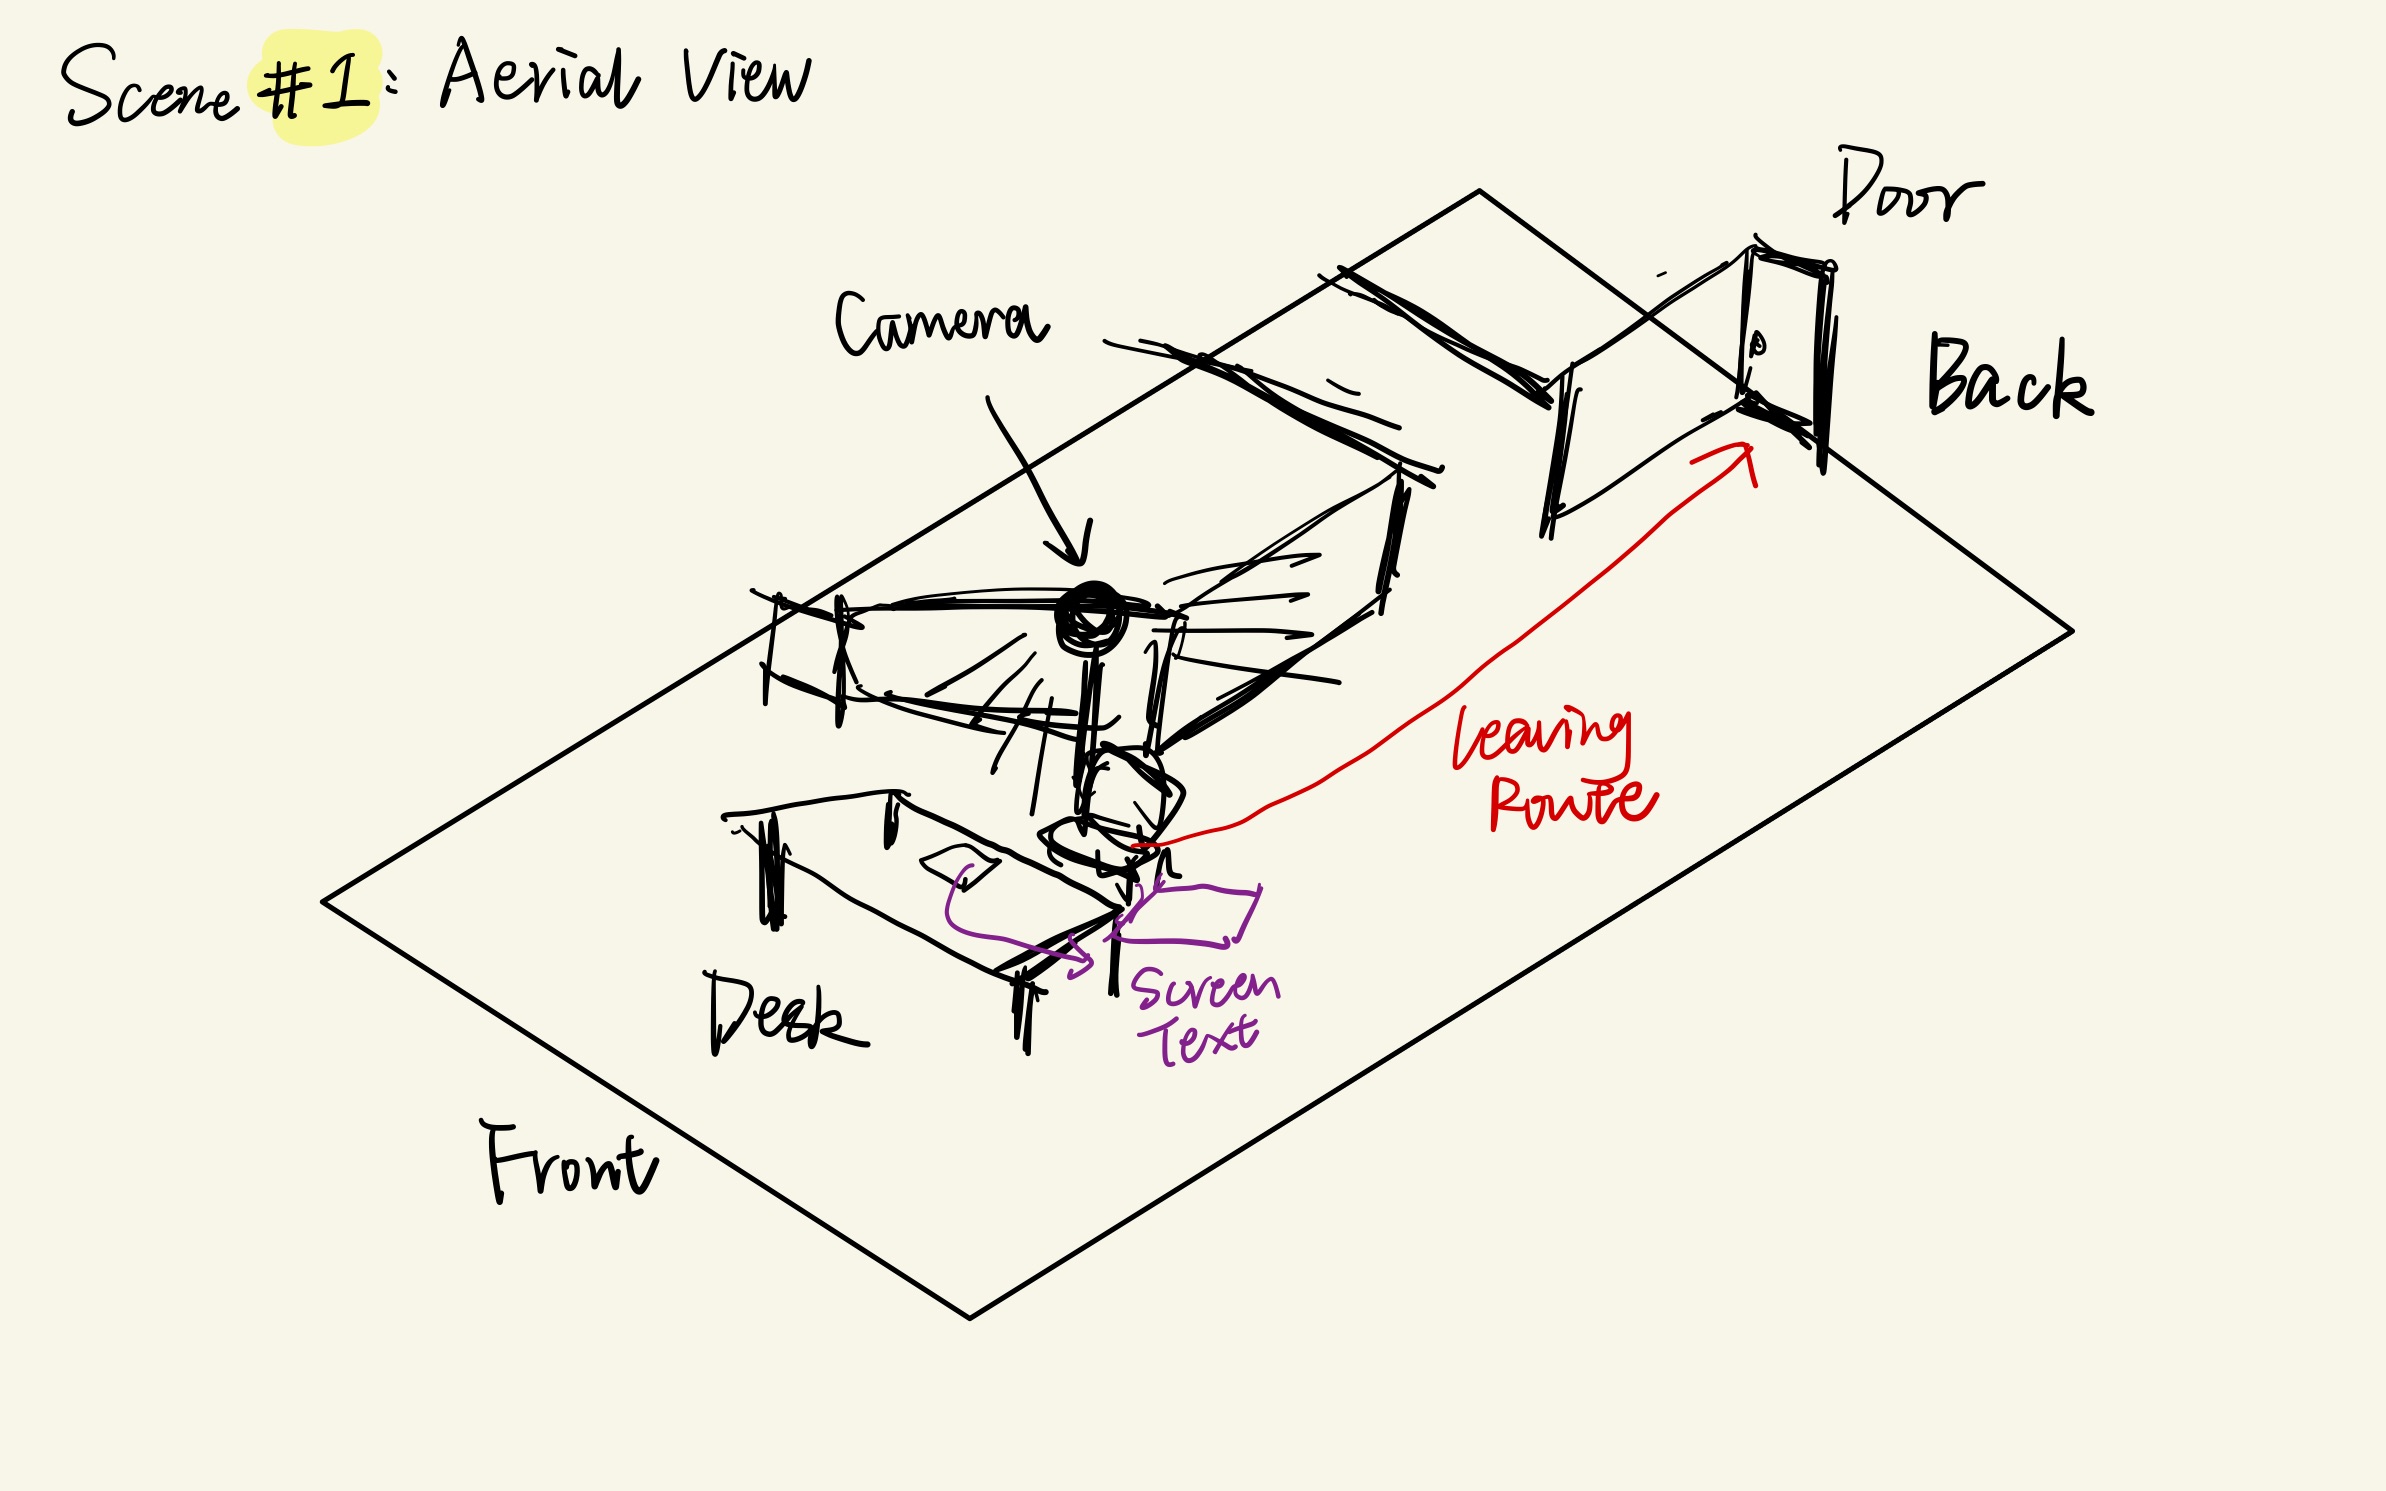 Scene #1: Aerial View
Door
Camera
Back
Leaving
Route
Screen
Text
Desk
Front